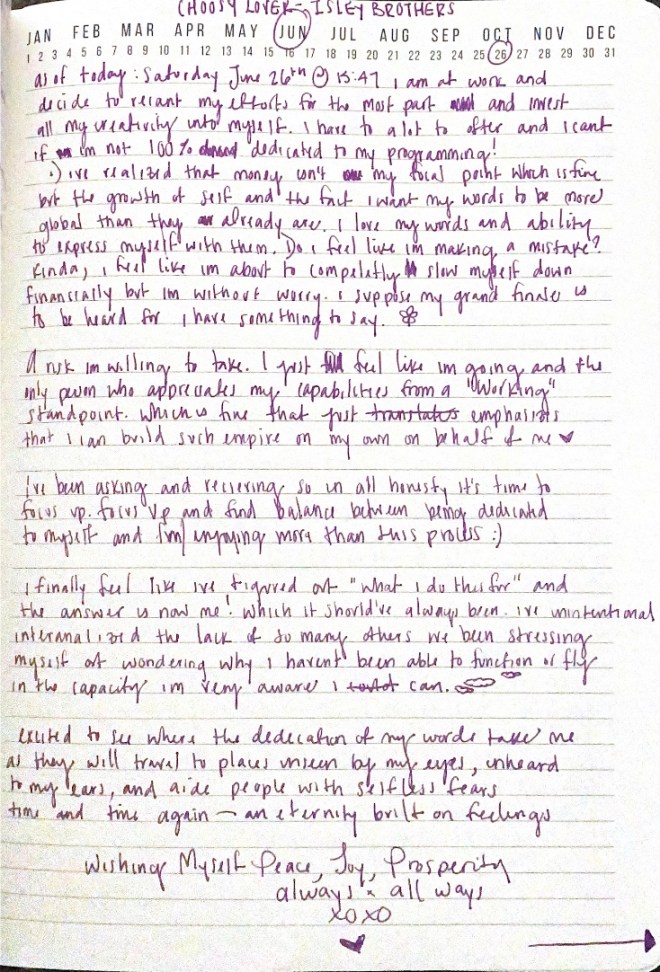 CHOOSY LOVER - ISLEY BROTHERS
JAN FEB MAR APR MAY JUN JUL AUG SEP OCT NOV DEC
1 2 3 4 5 6 7 8 9 10 11 12 13 14 15 16 17 18 19 20 21 22 23 24 25 26 27 28 29 30 31
as of today: Saturday June 26th @ 15:47 i am at work and
decide to recant my efforts for the most part and invest
all my creativity into myself. I have to a lot to offer and i cant
if im not 100% dedicated to my programming!
:) ive realized that money isn't my focal point which is fine
but the growth of self and the fact i want my words to be more
global than they already are. I love my words and ability
to express myself with them. Do i feel like im making a mistake?
Kinda, i feel like im about to compelatly slow myself down
financially but im without worry. i suppose my grand finale is
to be heard for i have something to say.
A risk im willing to take. I just feel like im going and the
only person who appreciates my capabilities from a "Working"
standpoint. Which is fine that just translates emphasizes
that I can build such empire on my own on behalf of me ♥
i've been asking and recieving so in all honesty it's time to
focus up. focus up and find balance between being dedicated
to myself and enjoying more than this process :)
i finally feel like ive figured out "what i do this for" and
the answer is now me! which it should've always been. ive unintentional
internalized the lack of so many others ive been stressing
myself out wondering why I havent been able to function or fly
in the capacity im very aware i can.
excited to see where the dedication of my words take me
as they will travel to places unseen by my eyes, unheard
to my ears, and aide people with selfless fears
time and time again — an eternity built on feelings
Wishing Myself Peace, Joy, Prosperity
always × all ways
xoxo